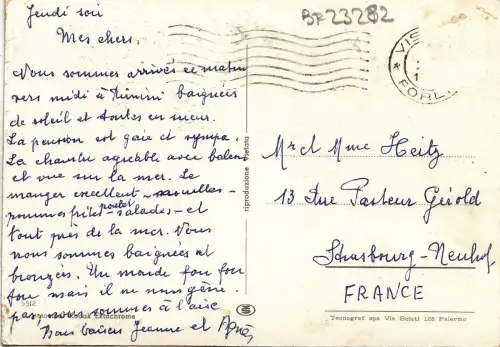 Jeudi soir
Mes chers,
Nous sommes arrivés ce matin
vers midi à Rimini baignées
de soleil et toutes en sueur.
La pension est gaie et sympa.
La chambre agréable avec balcon
et vue sur la mer. Le
manger excellent - nouilles -
pommes frites - poulet - salades - et
tout près de la mer. Nous
nous sommes baignées et
bronzées. Un monde fou fou
fou mais il ne nous gêne
pas, nous sommes à l'aise
Bons baisers Jeanne et Agnès
BF23282
VIS
FORL
Mr et Mme Heitz
13 Rue Pasteur Gérold
Strasbourg-Neuhof
FRANCE
riproduzione vietata
Ektachrome
Tecnograf spa Via Saluti 128 Palermo